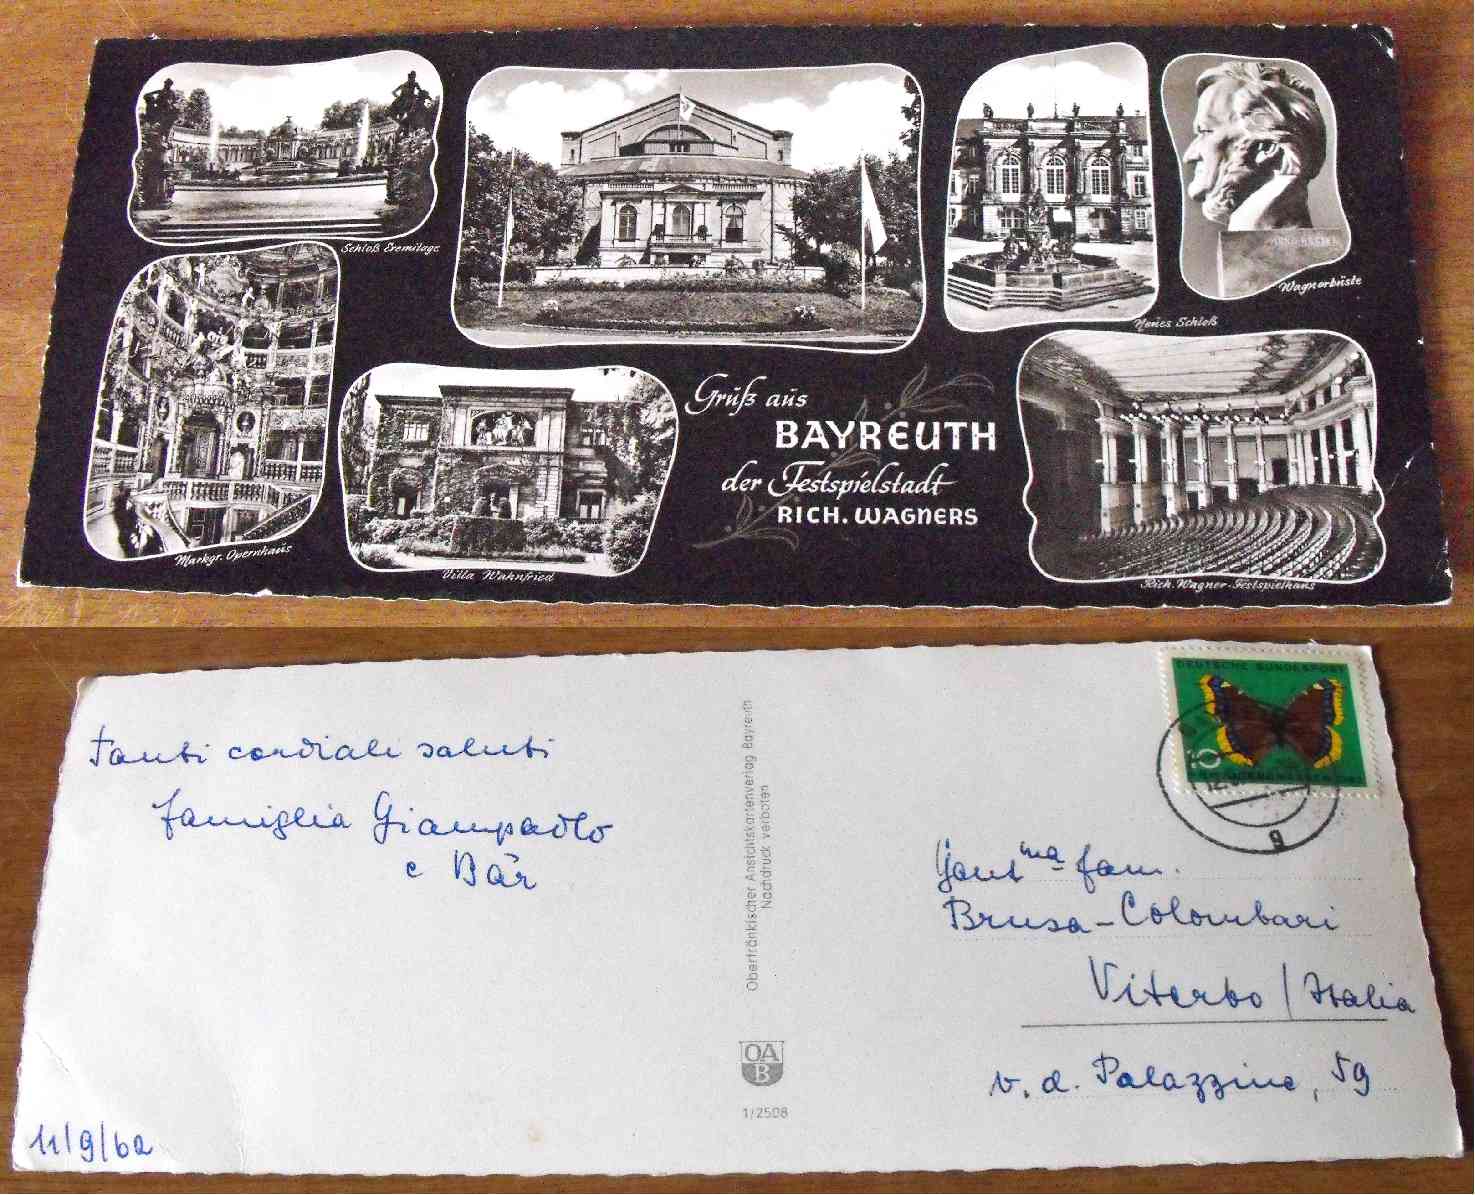 Schloß Eremitage
Markgr. Opernhaus
Villa Wahnfried
Gruß aus
BAYREUTH
der Festspielstadt
RICH. WAGNERS
Neues Schloß
Wagnerbüste
Rich. Wagner-Festspielhaus
Tanti cordiali saluti
famiglia Giampaolo
e Bär
11/9/62
Oberfränkischer Ansichtskartenverlag Bayreuth
Nachdruck verboten
OA
B
1/2508
DEUTSCHE BUNDESPOST
10
g
Gent.ma fam.
Brusa-Colombari
Viterbo / Italia
v. d. Palazzine, 59